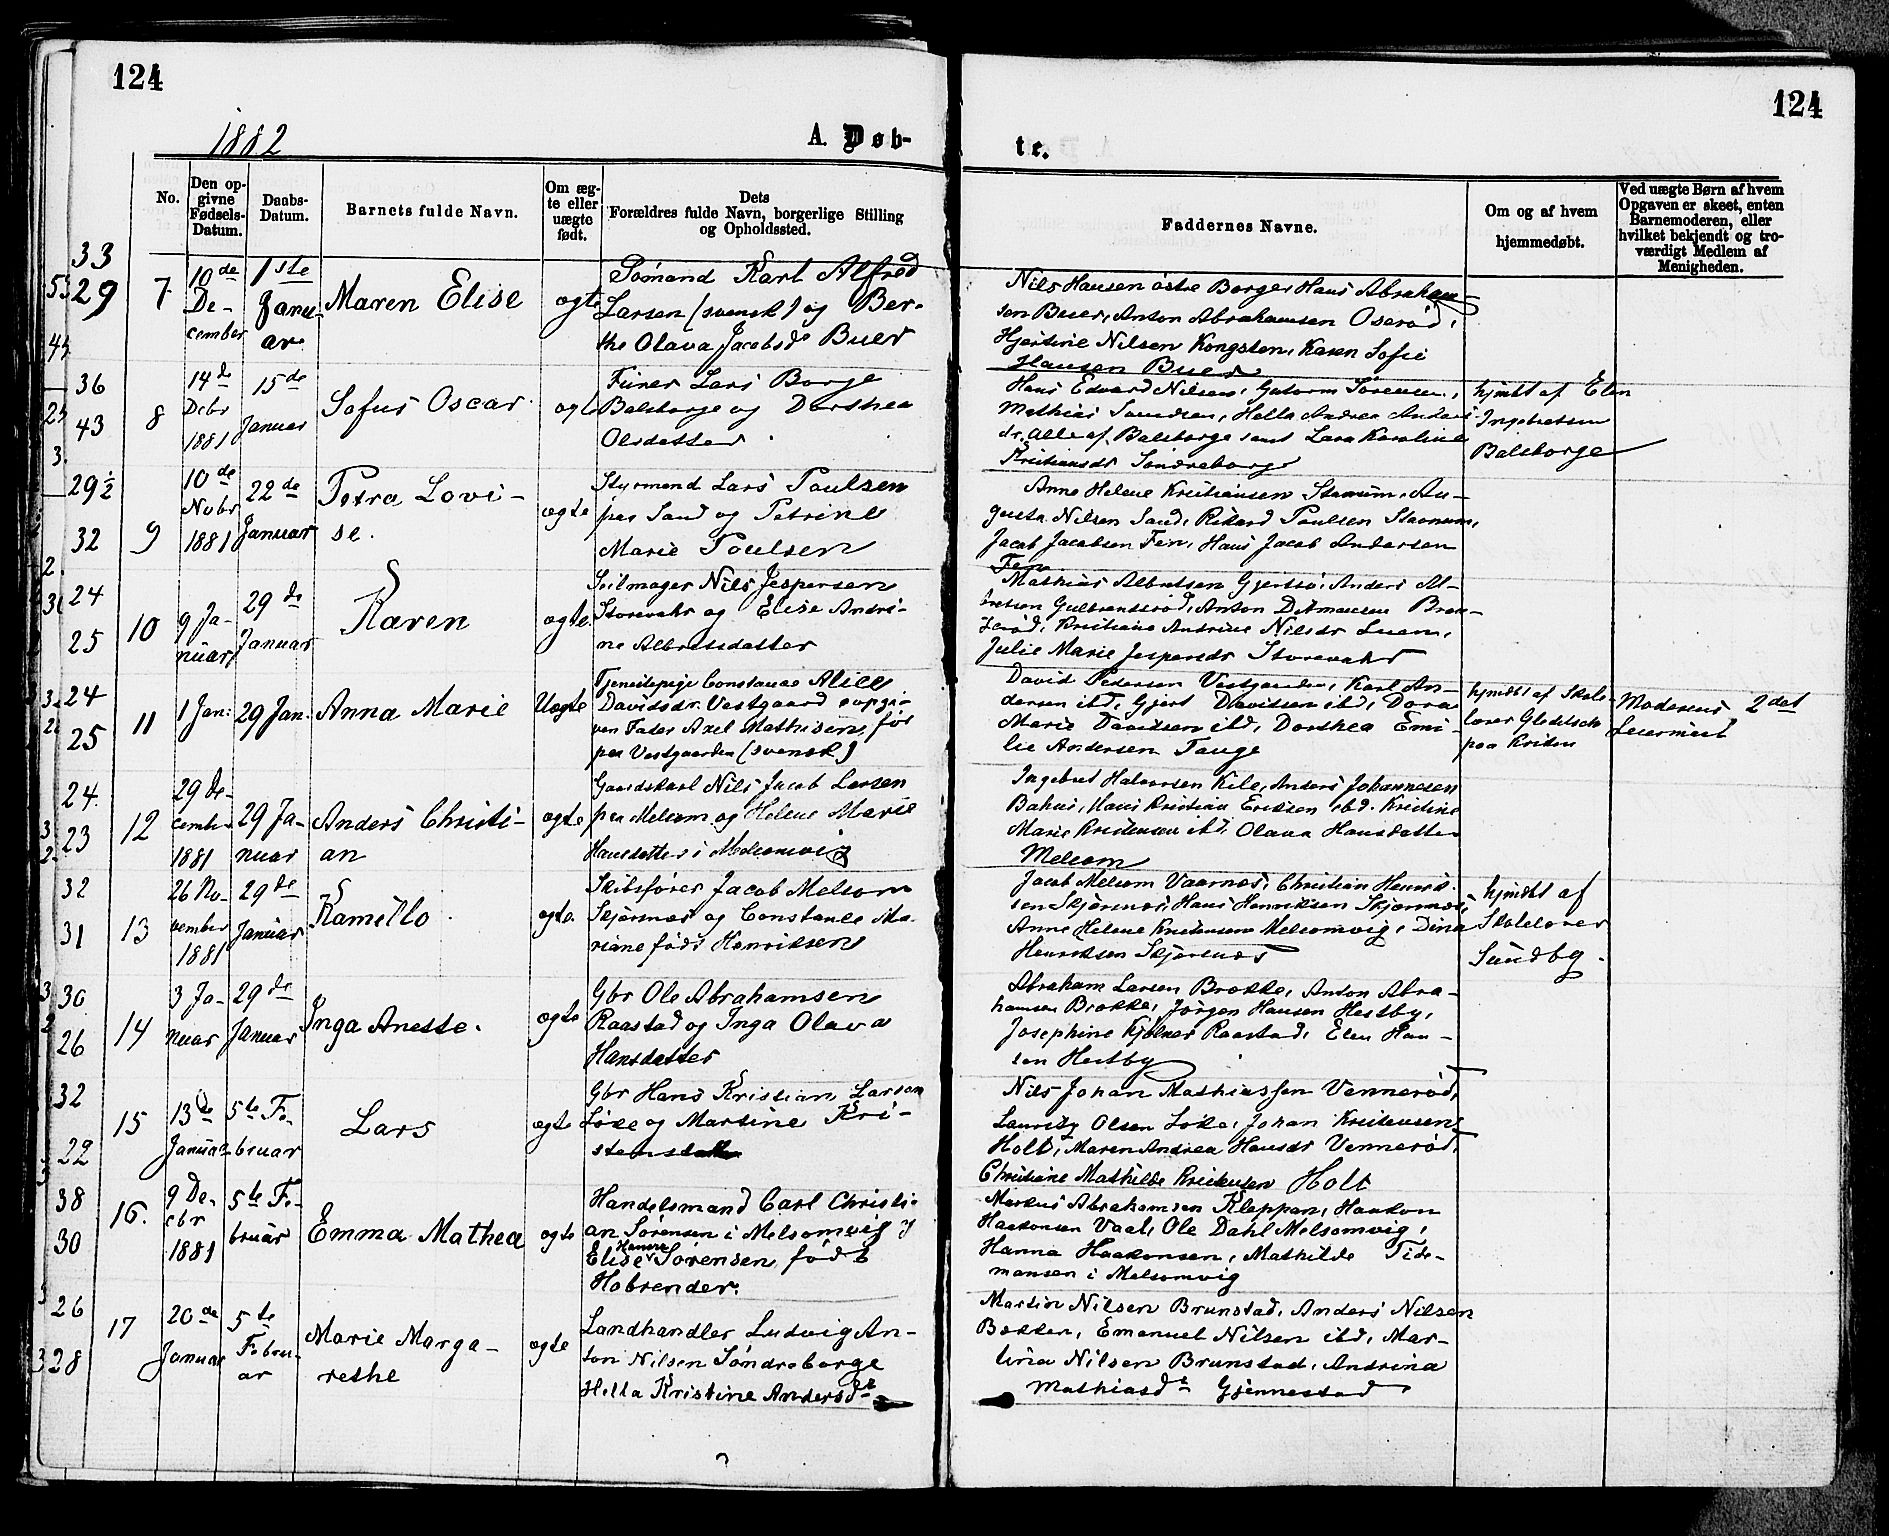 124
124
1882
A. Døb-
te.
No.
Den op-
givne
Fødsels-
Datum.
Daabs-
Datum.
Barnets fulde Navn.
Om æg-
te eller
uægte
født.
Dets
Forældres fulde Navn, borgerlige Stilling
og Opholdssted.
Faddernes Navne.
Om og af hvem
hjemmedøbt.
Ved uægte Børn af hvem
Opgaven er skeet, enten
Barnemoderen, eller
hvilket bekjendt og tro-
værdigt Medlem af
Menigheden.
33
29
7
10de
De-
cember
1ste
Janu-
ar
Maren Elise
ægte
Sømand Karl Alfred
Larsen (svensk) og Ber-
the Olava Jacobsdr Buer
Nils Hansen østre Borge, Hans Abraham-
sen Buer, Anton Abrahamsen Oserød,
Hjertine Nilsen Kongsten, Karen Sofie
Hansen Buer
36
43
8
14de
Debr
1881
15de
Januar
Sofus Oscar
ægte
Lars Borge
Balsborge og Dorthea
Olsdatter
Hans Edvard Nilsen, Guttorm Sørensen,
Mathias , Hella Andrea Anders-
dr. Alle af Balsborge samt Lara Karoline
Kristiansdr Søndreborge
hjmdbt af Elen
Ingebretsen
Balsborge
29½
32
9
10de
Nvbr
1881
22de
Januar
Petra Lovi-
se.
ægte
Styrmand Lars Poulsen
paa Sand og Petrine
Marie Poulsen
Anne Helene Kristiansen Stavnum, Au-
gusta Nilsen Sand, Rikard Poulsen Stavnum,
Jacob Jacobsen Fen, Hans Jacob Andersen
Fen
24
25
10
9 Ja-
nuar
29de
Januar
Karen
ægte
Seilmager Nils Jespersen
Storevahr og Elise Andri-
ne Albretsdatter
Mathias Albretsen Gjertsø, Anders Al-
bretsen Gulbrandsrød, Anton Ditmansen Bran-
, Kristiane Andrine Nilsdr Luem,
Julie Marie Jespersdr Storevahr
24
25
11
1 Jan:
29 Jan.
Anna Marie
Uægte
Tjenestepige Constance Alice
Davidsdr. Vestgaard opgi-
ven Fader Axel Mathisen, før
paa Vestgaarden (svensk)
David Pedersen Vestgaarden, Karl An-
dersen ibd, Gjert Davidsen ibd, Dora
Marie Davidsen ibd, Dorthea Emi-
lie Andersen Tauge
hjmdbt af Skole-
lærer Gleditsch
paa Kriken
Moderens 2det
Leiermaal
24
23
12
29 De-
cember
1881
29 Ja-
nuar
Anders Christi-
an
ægte
Gaardskarl Nils Jacob Larsen
paa Melsom og Helene Marie
Hansdatter i Melsomvig
Ingebret Halvorsen Kile, Anders Johannesen
Bakus, Hans Kristian Eriksen ibd. Kristine
Marie Kristensen ibd, Olava Hansdatter
Melsom
32
31
13
26 No-
vember
1881
29de
Januar
Kamillo
ægte
Skibsfører Jacob Melsom
Skjærsnæs og Constance Ma-
riane født Henriksen
Jacob Melsom Vaarnæs, Christian Henrik-
sen Skjærsnæs, Hans Henriksen Skjærsnæs,
Anne Helene Kristensen Melsomvig, Dina
Henriksen Skjærsnæs
hjmdbt af
Skolelærer
Sundby
30
26
14
3 Ja-
nuar
29de
Januar
Inga Anette.
ægte
Gbr Ole Abrahamsen
Raastad og Inga Olava
Hansdatter
Abraham Larsen Brække, Anton Abra-
hamsen Brække, Jørgen Hansen Hestby,
Josephine Kjølner Raastad, Elen Han-
sen Hestby
32
22
15
13de
Januar
5te Fe-
bruar
Lars
ægte
Gbr Hans Kristian Larsen
Løke og Martine Kri-
stensdatter
Nils Johan Mathiassen Vennerød,
Lauritz Olsen Løke, Johan Kristensen
Holt, Maren Andrea Hansdr Vennerød,
Christiane Mathilde Kristensen Holt
38
30
16.
9 De-
cbr
1881
5te Fe-
bruar
Emma Mathea
ægte
Handelsmand Carl Christi-
an Sørensen i Melsomvig og
Elise Hanna Sørensen født
Hobrender.
Markus Abrahamsen Kleppan, Haakon
Haakonsen Vaal, Ole Dahl Melsomvig,
Hanna Haakonsen, Mathilde Tide-
mansen i Melsomvig
26
28
17
20de
Januar
5te
Febru-
ar
Marie Marga-
rethe
ægte
Landhandler Ludvig An-
ton Nilsen Søndreborge
Hella Kristine Andersdt
Martin Nilsen Brunstad, Anders Nilsen
Bakken, Emanuel Nilsen ibd, Mar-
tina Nilsen Brunstad, Andrina
Mathiasdt Gjennestad